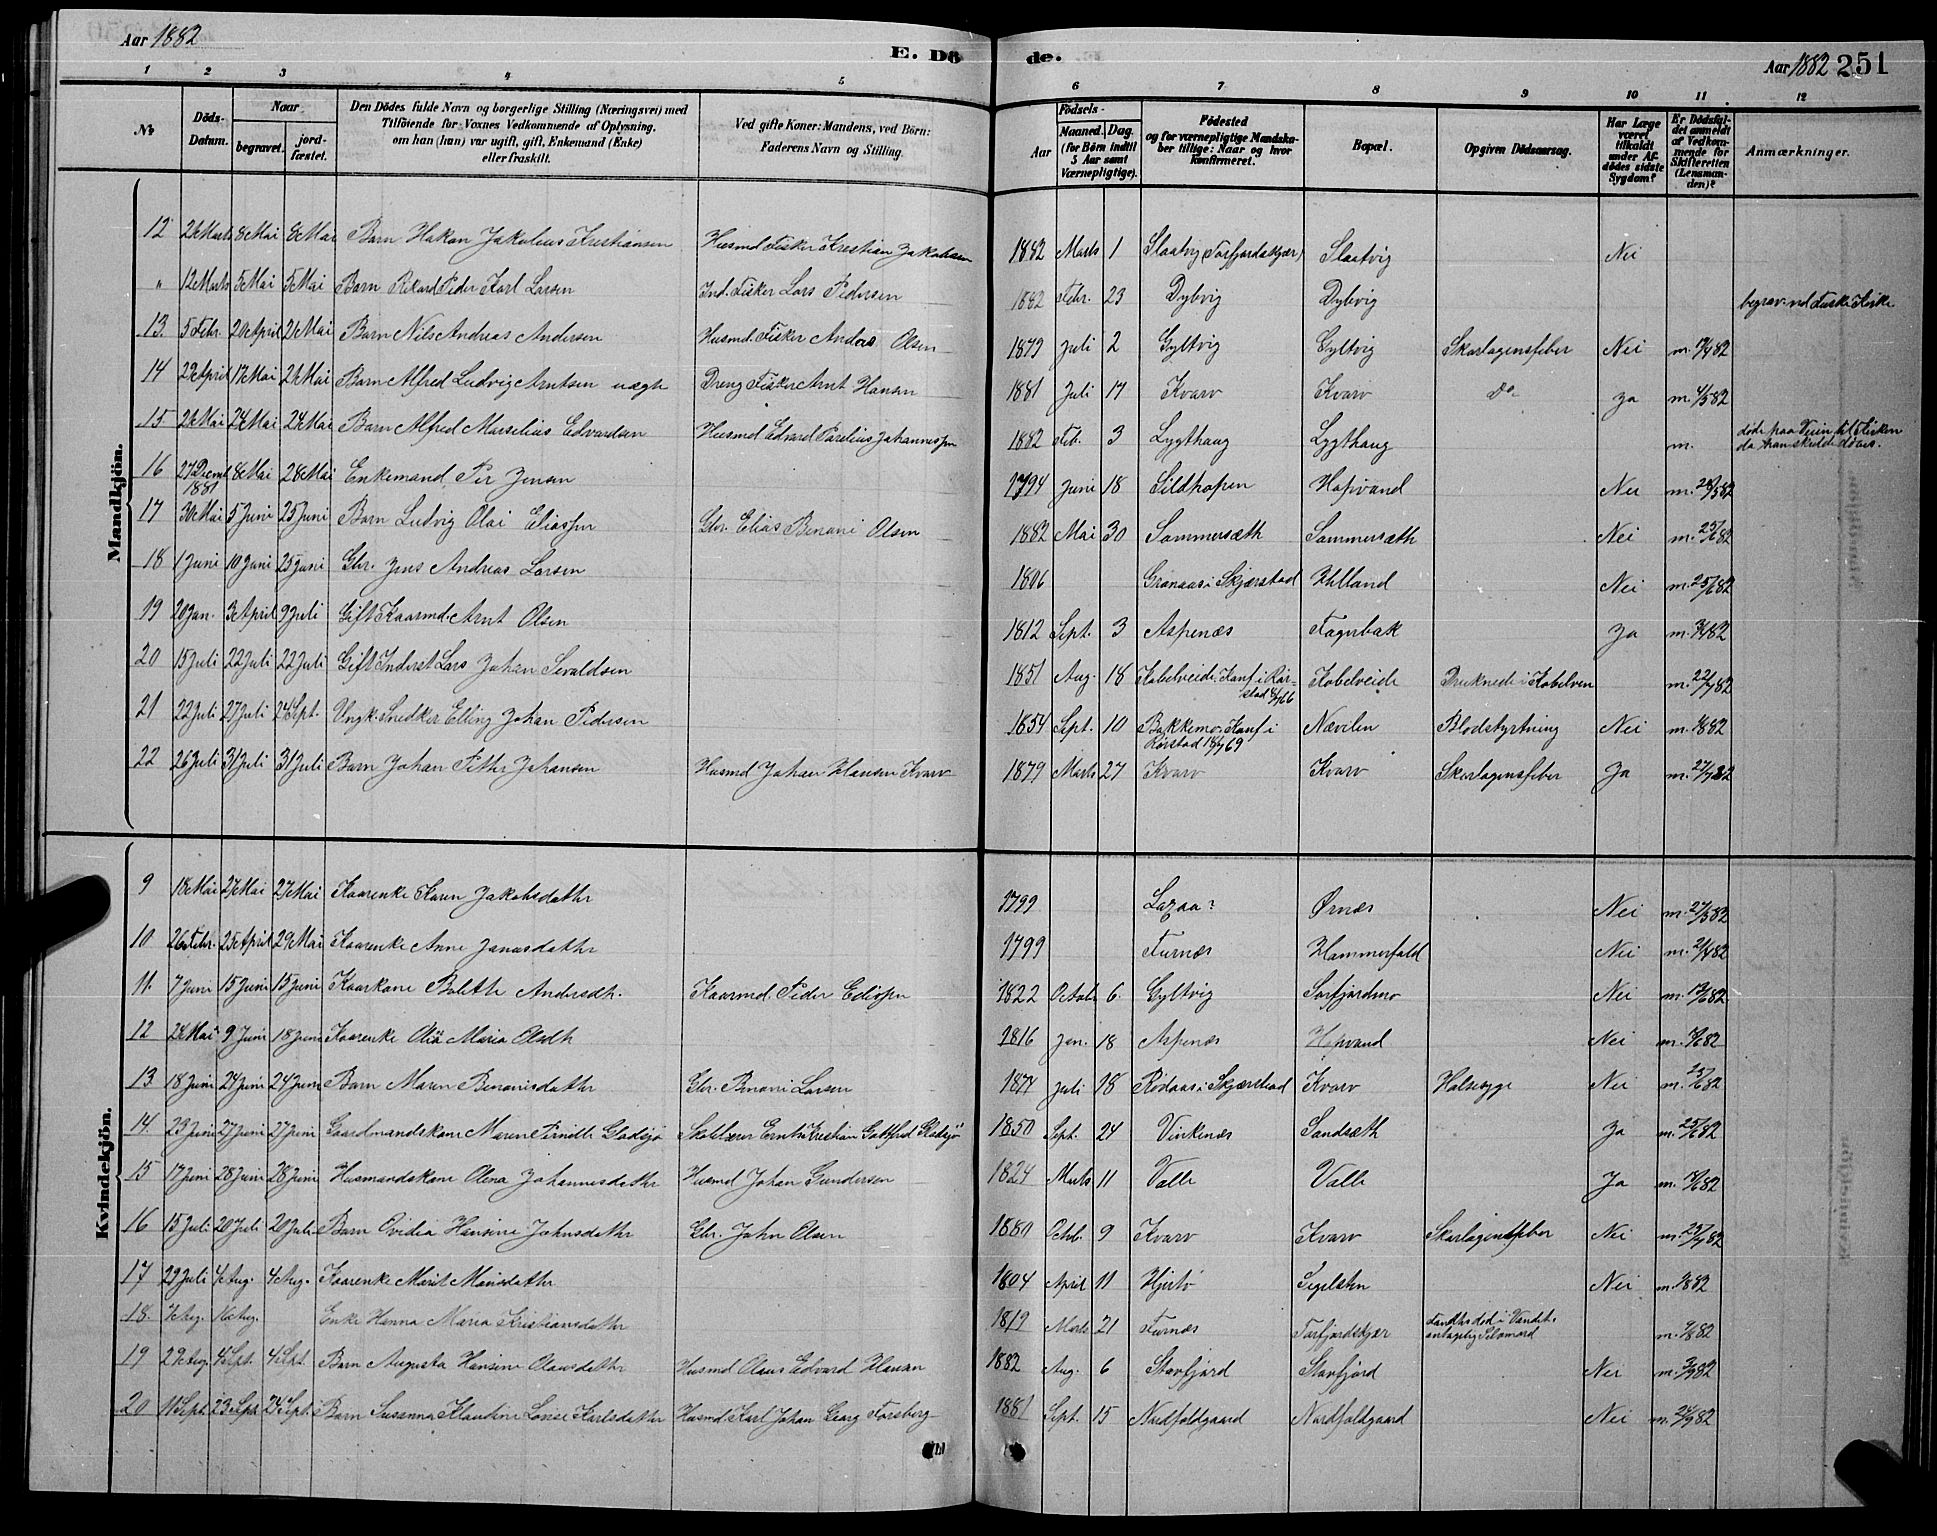 Aar 1882
E. Dö
de.
Aar 1882 251
1 2 3 4 5 6 7 8 9 10 11 12
No
Döds-Datum.
Naar
begravet.
jord-fæstet.
Den Dödes fulde Navn og borgerlige Stilling (Næringsvei) med
Tilföiende for Voxnes Vedkommende af Oplysning,
om han (hun) var ugift, gift, Enkemand (Enke)
eller fraskilt.
Ved gifte Koner: Mandens, ved Börn:
Faderens Navn og Stilling.
Födsels-
Aar
Maaned. Dag.
(for Börn indtil
5 Aar samt
Værnepligtige).
Födested
og for værnepligtige Mandska-
ber tillige: Naar og hvor
Konfirmeret.
Bopæl.
Opgiven Dödsaarsag.
Har Læge
været
tilkaldt
under Af-
dödes sidste
Sygdom?
Er Dödsfal-
det anmeldt
af Vedkom-
mende for
Skifteretten
(Lensman-
den)?
Anmærkninger.
Mandkjön.
12 Marts 8 Mai 8 Mai Barn Hakon Jakobius Kristiansen Husmd Fisker Kristian Jakobsen 1882 Marts 1 Slaatvig (Torfjordskjær) Slaatvig Nei
" 12 Marts 5 Mai 5 Mai Barn Rikard Peder Karl Larsen Ind. Fisker Lars Pedersen 1882 Febr. 23 Dybvig Dybvig begrav. ved Kirke
13. 5 Febr. 20 April 2 Mai Barn Nils Andreas Andersen Husmd. Fisker Anders Olsen 1879 Juli 2 Gyltvig Gyltvig Skarlagensfeber Nei
14 29 April 17 Mai 21 Mai Barn Alfred Ludvig Arntsen uægte Dreng Fisker Arnt Hansen 1881 Juli 17 Kvarv Kvarv Do Ja m. 4/5 82
15 Mai 24 Mai 24 Mai Barn Alfred Marselius Edvardsen Husmd Edvard Parelius Johannesen 1882 Feb. 3 Lygthaug Lygthaug m. döde paa Veien til Kirken da han skulde döbes.
16 27 Decmb 1881 8 Mai 28 Mai Enkemand Per Jensen 1794 Juni 18 Sildhopen Hopvand Nei m. 28/5 82
17 30 Mai 5 Juni 25 Juni Barn Ludvig Olai Eliasen Gbr. Elias Benoni Olsen 1882 Mai 30 Sommersæth Sommersæth Nei m. 23/6 82
18 1 Juni 10 Juni 25 Juni Gbr. Jens Andreas Larsen 1806 Grønaas i Skjærstad Helland Nei m. 25/6 82
19 20 Jan. 3 April 9 Juli Gift Kaarmd. Arnt Olsen 1812 Sept. 3 Aspenæs Fagerbak Ja m. 3/4 82
20 15 Juli 22 Juli 22 Juli Gift Inderst Lars Johan Sevaldsen 1851 Aug. 18 Kobelveide. Konf i Rørstad 8/7 66 Kobelveide Druknede i Kobelven m. 22/7 82
21 22 Juli 27 Juli 24 Sept. Ungk. Snedker Elling Johan Pedersen 1854 Sept. 10 Bakkemo. Konf i Rørstad 18/7 69 Nævilen Blodstyrtning Nei
22 26 Juli 31 Juli 31 Juli Barn Johan Petter Johansen Husmd Johan Hansen Kvarv 1879 Marts 27 Kvarv Kvarv Skarlagensfeber Ja m. 27/7 82
Kvindekjön.
9 18 Mai 27 Mai 27 Mai Kaarenke Karen Jakobsdatter 1799 Ørnæs Nei m. 27/5 82
10 26 Febr. 25 April 29 Mai Kaarenke Anne Jonasdatter 1799 Furnæs Hammerfald Nei
11. 7 Juni 15 Juni 15 Juni Kaarkone Bolette Andersdt. Kaarmd. Peder 1822 Octob 6. Gyltvig Sørfjordmo Nei
12 Mai 9 Juni 18 Juni Kaarenke Maria Olsdt 1816 Jan. 18 Aspenæs Hopvand Nei
13 18 Juni 24 Juni 24 Juni Barn Maren Benonisdatter Gbr. Benoni Larsen 1877 Juli 18 Rødaas i Skjærstad Kvarv Halssyge Nei m. 25/6 82
14. 23 Juni 27 Juni 27 Juni Gaardmandskone Maren Pernille Gladsjø Skolelærer Ernts Kristian Gotfred Gladsjø 1850 Sept. 24 Vinkenæs Sandsæth Ja m. 25/6 82
15 17 Juni 28 Juni 28 Juni Husmandskone Olena Johannesdatter Husmd Johan Gundersen 1824 Marts 11 Valle Valle Ja
16 15 Juli 20 Juli 20 Juli Barn Ovidia Hansine Johnsdatter Gbr. John Olsen 1880 Octob. 9 Kvarv Kvarv Skarlagensfeber Nei m. 25/7 82
17 29 Juli 4 Aug. 4 Aug. Kaarenke Marit Monsdatter 1804 April 11 Hjertø Nei
18. Aug. Aug. Enke Hanna Maria Kristiansdatter 1819 Marts 21 Furnæs Torfjordskjær Fandtes död i Vandet. antagelig Selvmord
19 29 Aug. 4 Sept. 4 Sept. Barn Augusta Hansine Olausdatter Husmd Olaus Edvard Hansen 1882 Aug. 6 Storfjord Storfjord Nei m. 3/9 82
20 11 Sept. 23 Sept. 24 Sept. Barn Susanna Klaudine Lovise Karlsdatter Husmd. Karl Johan Georg Forsberg 1881 Sept. 15 Nordfoldgaard Nordfoldgaard Nei m. 24/9 82